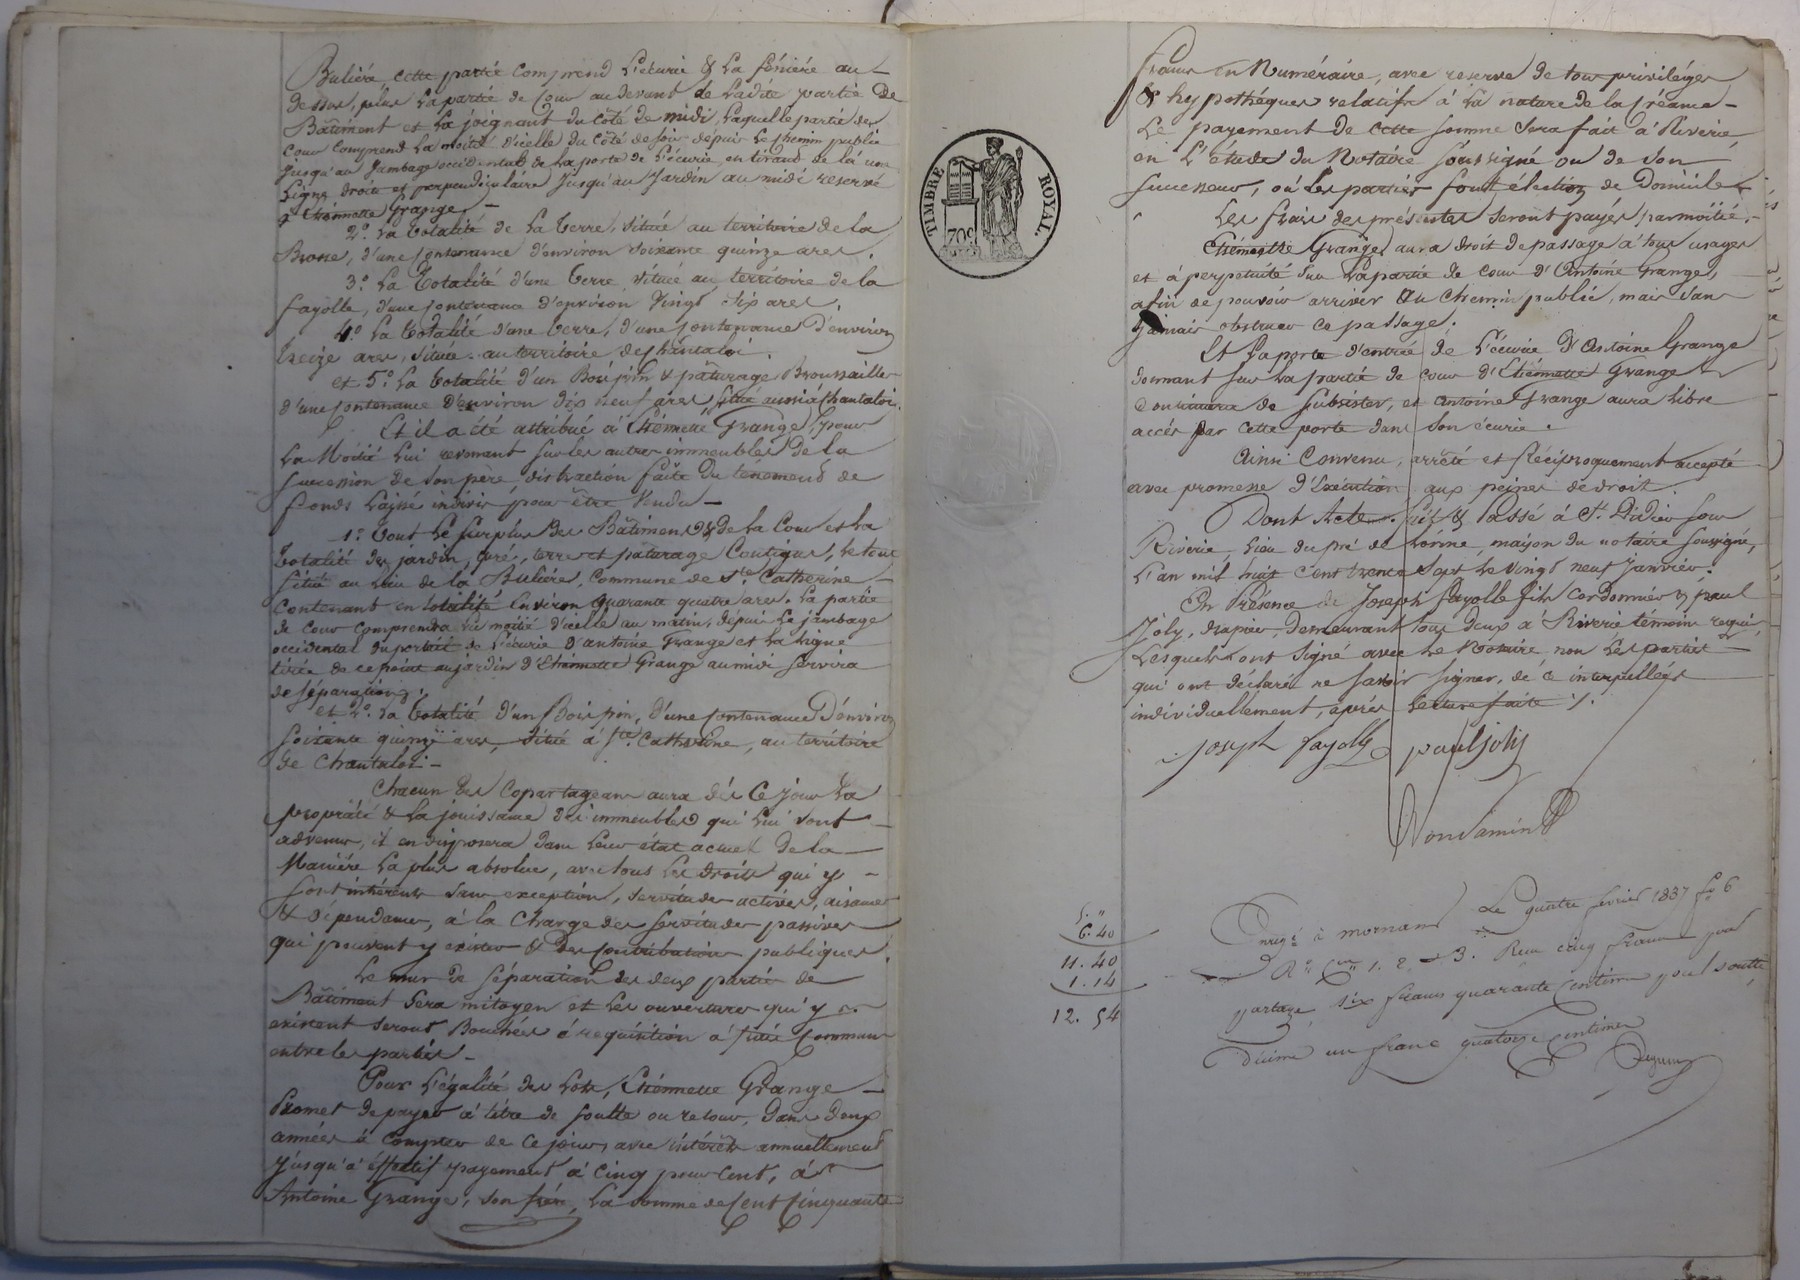 Bulièra cette partie comprend L'écurie & La fénière au-
dessus, plus La partie de Cour au devant de Ladite partie de
Bâtiment et La joignant du côté de midi, Laquelle partie de
Cour Comprend La moitié d'icelle du Côté de soir depuis Le Chemin public
jusqu'au Jambage occidental de La porte de L'écurie, en tirant de là une
Ligne droite et perpendiculaire Jusqu'au Jardin au midi réservé
à Etiennette Grange. -
2.° La totalité de La terre, située au territoire de la
Brosse, d'une Contenance d'environ soixante quinze ares.
3.° La Totalité d'une Terre, située au territoire de la
fayolle, d'une Contenance d'environ Vingt six ares.
4.° La Totalité d'une terre, d'une Contenance d'environ
treize ares, située au territoire de Chantaloi.
et 5.° La totalité d'un Bois pin & pâturage Broussailles
d'une Contenance d'environ dix neuf ares, situé aussi à Chantaloi.
Et il a été attribué à Etiennette Grange, pour
La Moitié lui revenant sur les autres immeubles de la
succession de son père, distraction faite du tenement de
fonds Laissé indivis pour être Vendu -
1.° Tout Le surplus des Bâtimens & de La Cour et La
totalité des jardin, pré, terre et pâturage Contigus, Le tout
situé au Lieu de la Bulière, Commune de S.te Catherine
Contenant en totalité Environ quarante quatre ares. La partie
de Cour comprendra La moitié d'icelle au matin, depuis Le jambage
occidental du portail de L'écurie d'antoine Grange et La Ligne
tirée de ce point au jardin d'Etiennette Grange au midi servira
de séparation.
et 2.° La totalité d'un Bois pin, d'une Contenance d'environ
soixante quinze ares, situé à S.te Catherine, au territoire
de Chantaloi -
Chacun des Copartageans aura dès Ce jour La
propriété & La jouissance des immeubles qui Lui sont
advenus, il en disposera dans Leur état actuel de la
Manière La plus absolue, avec tous Les droits qui y
sont inhérents sans exception, servitudes actives, aisances
& dépendances, à la Charge des servitudes passives
qui peuvent y exister & des Contributions publiques.
Le mur de séparation des deux parties de
Bâtiment sera mitoyen et Les ouvertures qui y
existent seront Bouchées à réquisition à frais Communs
entre les parties. -
Pour L'égalité des Lots, Etiennette Grange
Promet de payer à titre de soulte ou retour, dans deux
années à compter de Ce jour, avec intérêts annuellement
jusqu'à éffectif payement à Cinq pour Cent, à
Antoine Grange, son frère, La somme de Cent Cinquante
TIMBRE ROYAL.
70c
francs en Numéraire, avec reserve de tous privilèges
& hypothèques relatifs à La nature de la Créance -
Le payement de cette somme sera fait à Riverie
en L'étude du Notaire soussigné ou de son
successeur, où Les parties font élection de Domicile
Les frais des présentes seront payés par moitié. -
Etiennette Grange aura droit de passage à tous usages
et à perpétuité sur La partie de cour d'Antoine Grange,
afin de pouvoir arriver au Chemin public, mais sans
jamais obstruer ce passage.
Et La porte d'entrée de L'écurie d'Antoine Grange
donnant sur La partie de cour d'Etiennette Grange
Continuera de subsister, et Antoine Grange aura Libre
accès par cette porte dans son écurie.
Ainsi Convenu, arrêté et Réciproquement accepté
avec promesse d'Exécution aux peines de droit.
Dont Acte. Fait & Passé à S.t Didier sous
Riverie, Lieu du pré de Lorme, maison du notaire soussigné,
L'an mil huit Cent trente sept Le vingt neuf Janvier.
En Présence de Joseph Fayolle fils Cordonnier & paul
Joly, drapier, Demeurant tous deux à Riverie témoins requis,
Lesquels ont signé avec Le Notaire, non Les parties
qui ont déclaré ne savoir signer, de ce interpellées
individuellement, après Lecture faite ./.
Joseph fayolle paul joly
Enreg.é à mornant Le quatre février 1837 f.° 6
R.° C.es 1. 2. et 3. Reçu cinq francs pour
partage, six francs quarante Centimes pour soulte,
Décime un franc quatorze centimes
5. "
6. 40
11. 40
1. 14
12. 54